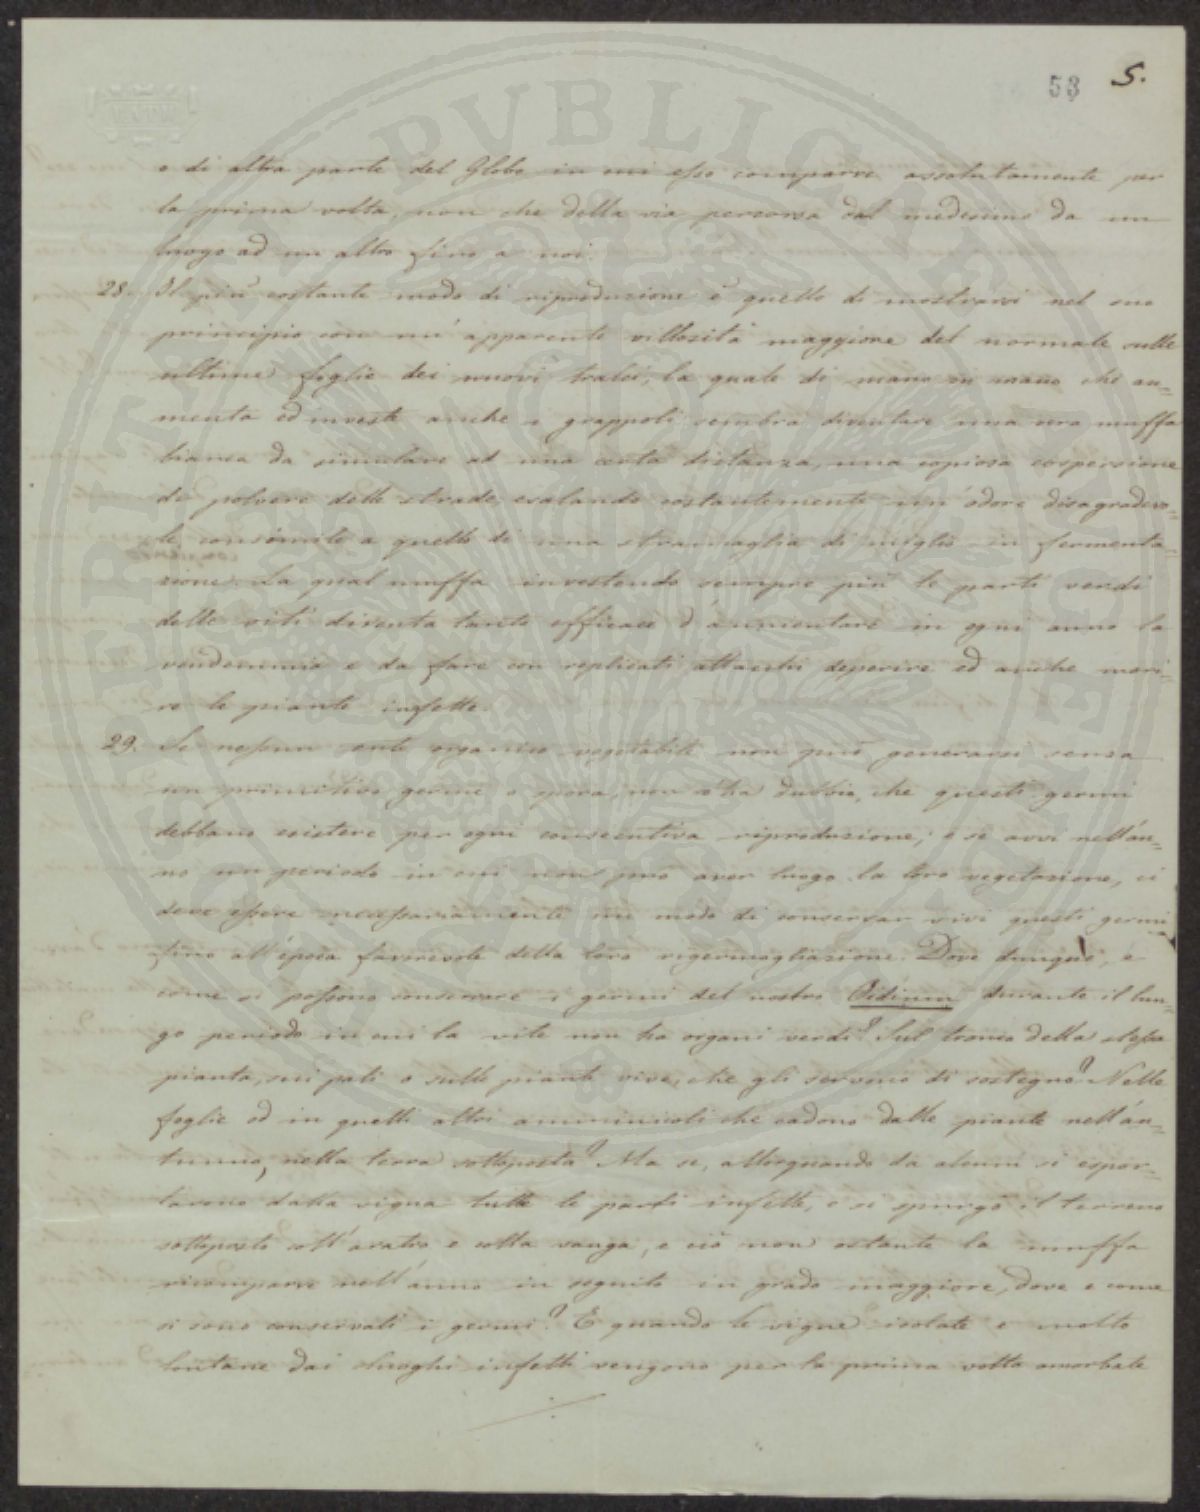 53 5.
o di altra parte del Globo in cui esso comparve assolutamente per
la prima volta, non che della via percorsa dal medesimo da un
luogo ad un altro fino a noi.
28. Il più costante modo di riproduzione è quello di mostrarsi nel suo
principio con un'apparente villosità maggiore del normale sulle
ultime foglie dei nuovi tralci, la quale di mano in mano che au=
menta ed investe anche i grappoli sembra diventare una vera muffa
bianca da simulare ad una certa distanza, una copiosa cospersione
di polvere delle strade, esalando costantemente un'odore disagradevo=
le, consimile a quello di una stramaglia di miglio in fermenta=
zione. La qual muffa investendo sempre più le parti verdi
delle viti diventa tanto efficace d'annientare in ogni anno la
vendemmia e da fare con replicati attacchi deperire ed anche mori=
re le piante infette.
29. Se nessun ente organico vegetabile non può generarsi senza
un primitivo germe o spora, non v'ha dubbio, che questi germi
debbano esistere per ogni consecutiva riproduzione; e se avvi nell'an=
no un periodo in cui non può aver luogo la loro vegetazione, ci
deve essere necessariamente un modo di conservar vivi questi germi
fino all'época favorevole della loro rigermogliazione. Dove dunque, e
come si possono conservare i germi del nostro Oidium durante il lun=
go periodo in cui la vite non ha organi verdi? Sul tronco della stessa
pianta, sui pali o sulle piante vive, che gli servono di sostegno? Nelle
foglie od in quelli altri amminnicoli che cadono dalle piante nell'au=
tunno, nella terra sottoposta? Ma se, allorquando da alcuni si espor=
tarono dalla vigna tutte le parti infette, e si spurgò il terreno
sottoposto coll'aratro e colla vanga, e ciò non ostante la muffa
ricomparve nell'anno in seguito in grado maggiore, dove e come
si sono conservati i germi? E quando le vigne isolate e molto
lontane dai luoghi infetti vengono per la prima volta amorbate